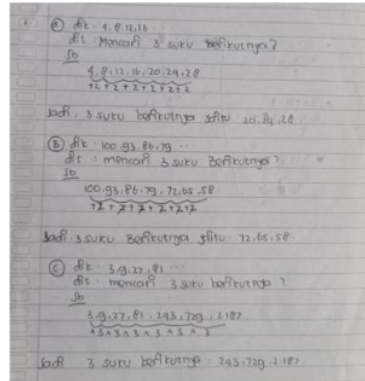 A dik : 4, 8, 12, 16
dit : Mencari 3 suku berikutnya?
Jb
4, 8, 12, 16, 20, 24, 28
+2 +2 +2 +2 +2 +2
Jadi, 3 suku berikutnya yaitu 20, 24, 28
B dik : 100, 93, 86, 79 ...
dit : mencari 3 suku berikutnya?
Jb
100, 93, 86, 79, 72, 65, 58
+7 +7 +7 +7 +7 +7
Jadi, 3 suku berikutnya yaitu : 72, 65, 58.
C dik : 3, 9, 27, 81 ...
dit : mencari 3 suku berikutnya ?
Jb.
3, 9, 27, 81, 243, 729, 2187
×3 ×3 ×3 ×3 ×3 ×3
Jadi 3 suku berikutnya : 243, 729, 2187.